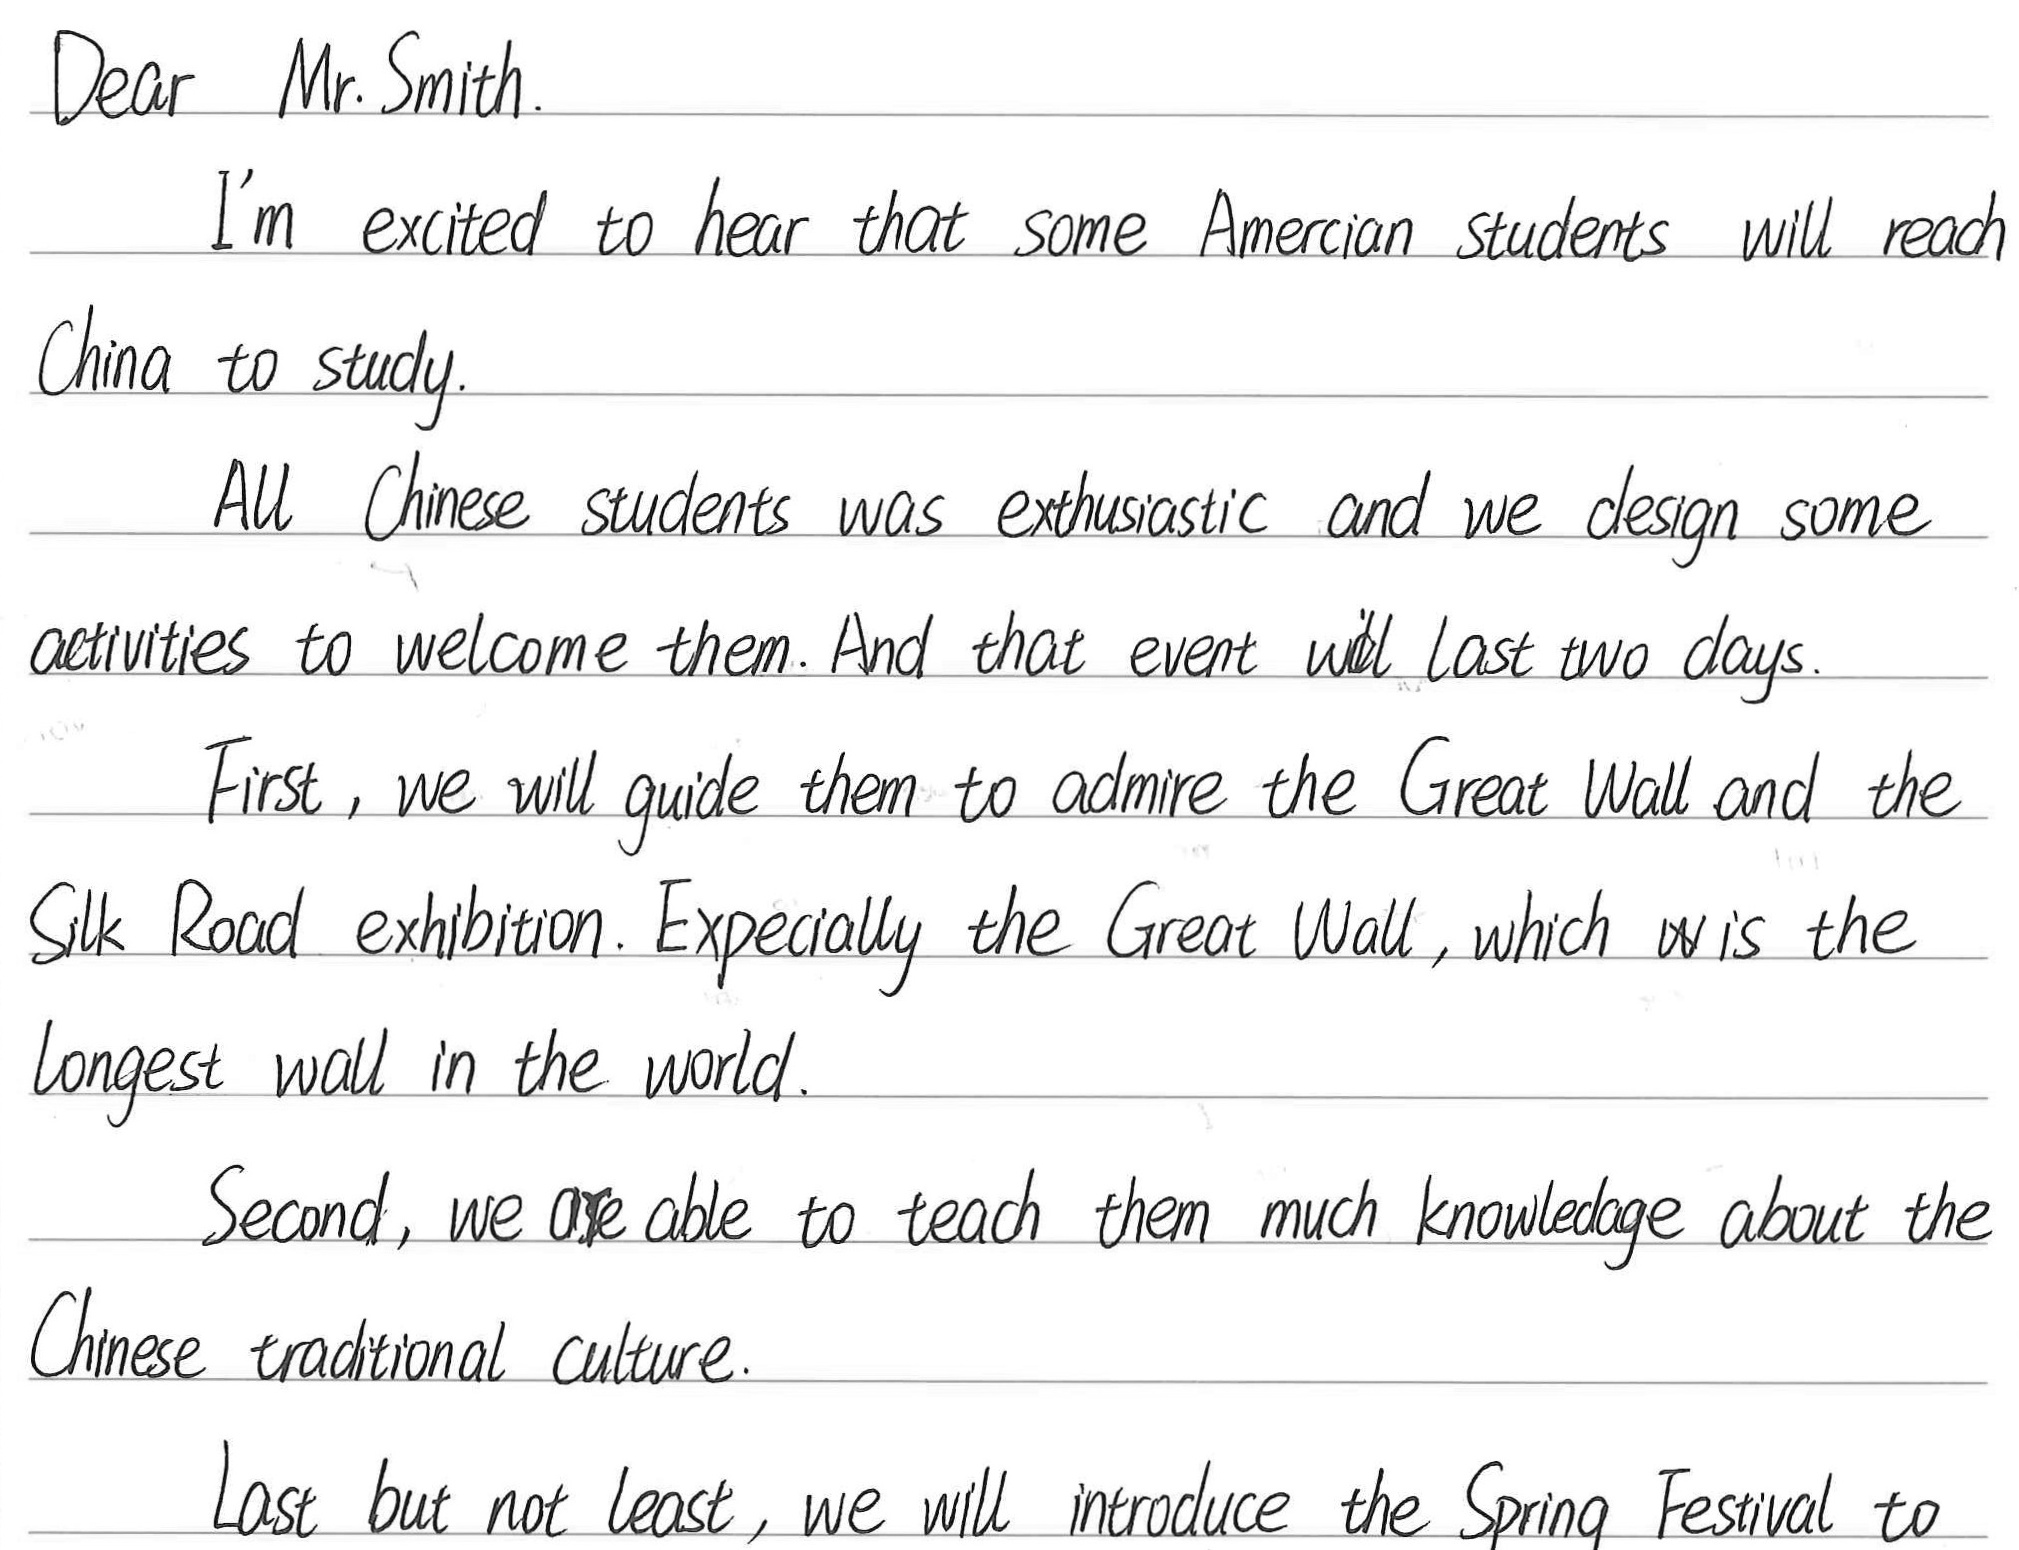 Dear Mr. Smith.
I'm excited to hear that some Amercian students will reach
China to study.
All Chinese students was exthusiastic and we design some
activities to welcome them. And that event will last two days.
First, we will guide them to admire the Great Wall and the
Silk Road exhibition. Expecially the Great Wall, which is the
longest wall in the world.
Second, we are able to teach them much knowledage about the
Chinese traditional culture.
Last but not least, we will introduce the Spring Festival to